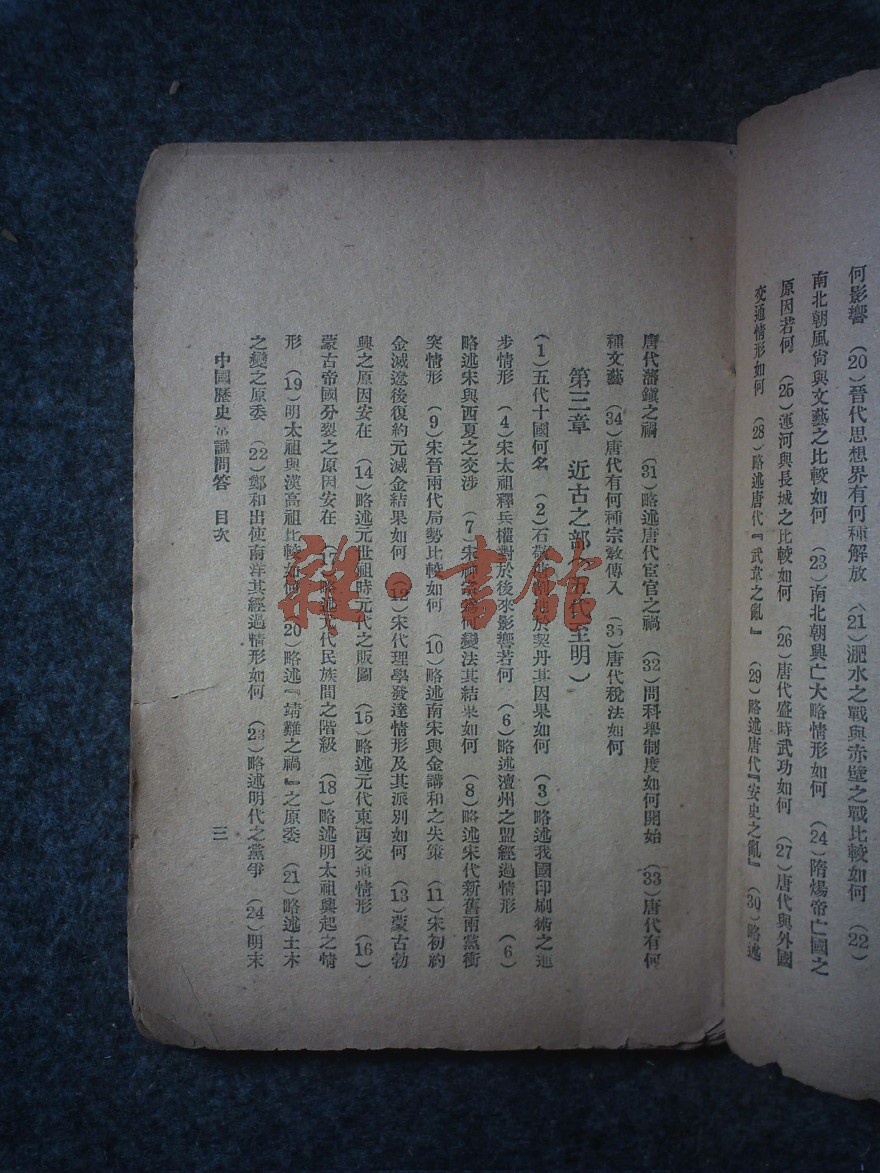 何影響　(20)晉代思想界有何種解放　(21)淝水之戰與赤壁之戰比較如何　(22)
南北朝風尙與文藝之比較如何　(23)南北朝興亡大略情形如何　(24)隋煬帝亡國之
原因若何　(25)運河與長城之比較如何　(26)唐代盛時武功如何　(27)唐代與外國
交通情形如何　(28)略述唐代『武韋之亂』　(29)略述唐代『安史之亂』　(30)略述
唐代藩鎭之禍　(31)略述唐代宦官之禍　(32)問科舉制度如何開始　(33)唐代有何
種文藝　(34)唐代有何種宗敎傳入　(35)唐代稅法如何
第三章　近古之部(五代至明)
(1)五代十國何名　(2)石敬瑭割地於契丹其因果如何　(3)略述我國印刷術之進
步情形　(4)宋太祖釋兵權對於後來影響若何　(6)略述澶州之盟經過情形　(6)
略述宋與西夏之交涉　(7)宋神宗爲何變法其結果如何　(8)略述宋代新舊兩黨衝
突情形　(9)宋晉兩代局勢比較如何　(10)略述南宋與金講和之失策　(11)宋初約
金滅遼後復約元滅金結果如何　(12)宋代理學發達情形及其派別如何　(13)蒙古勃
興之原因安在　(14)略述元世祖時元代之版圖　(15)略述元代東西交通情形　(16)
蒙古帝國分裂之原因安在　(17)略述元代民族間之階級　(18)略述明太祖興起之情
形　(19)明太祖與漢高祖比較如何　(20)略述『靖難之禍』之原委　(21)略述土木
之變之原委　(22)鄭和出使南洋其經過情形如何　(23)略述明代之黨爭　(24)明末
中國歷史常識問答　目次　三
雜·書館